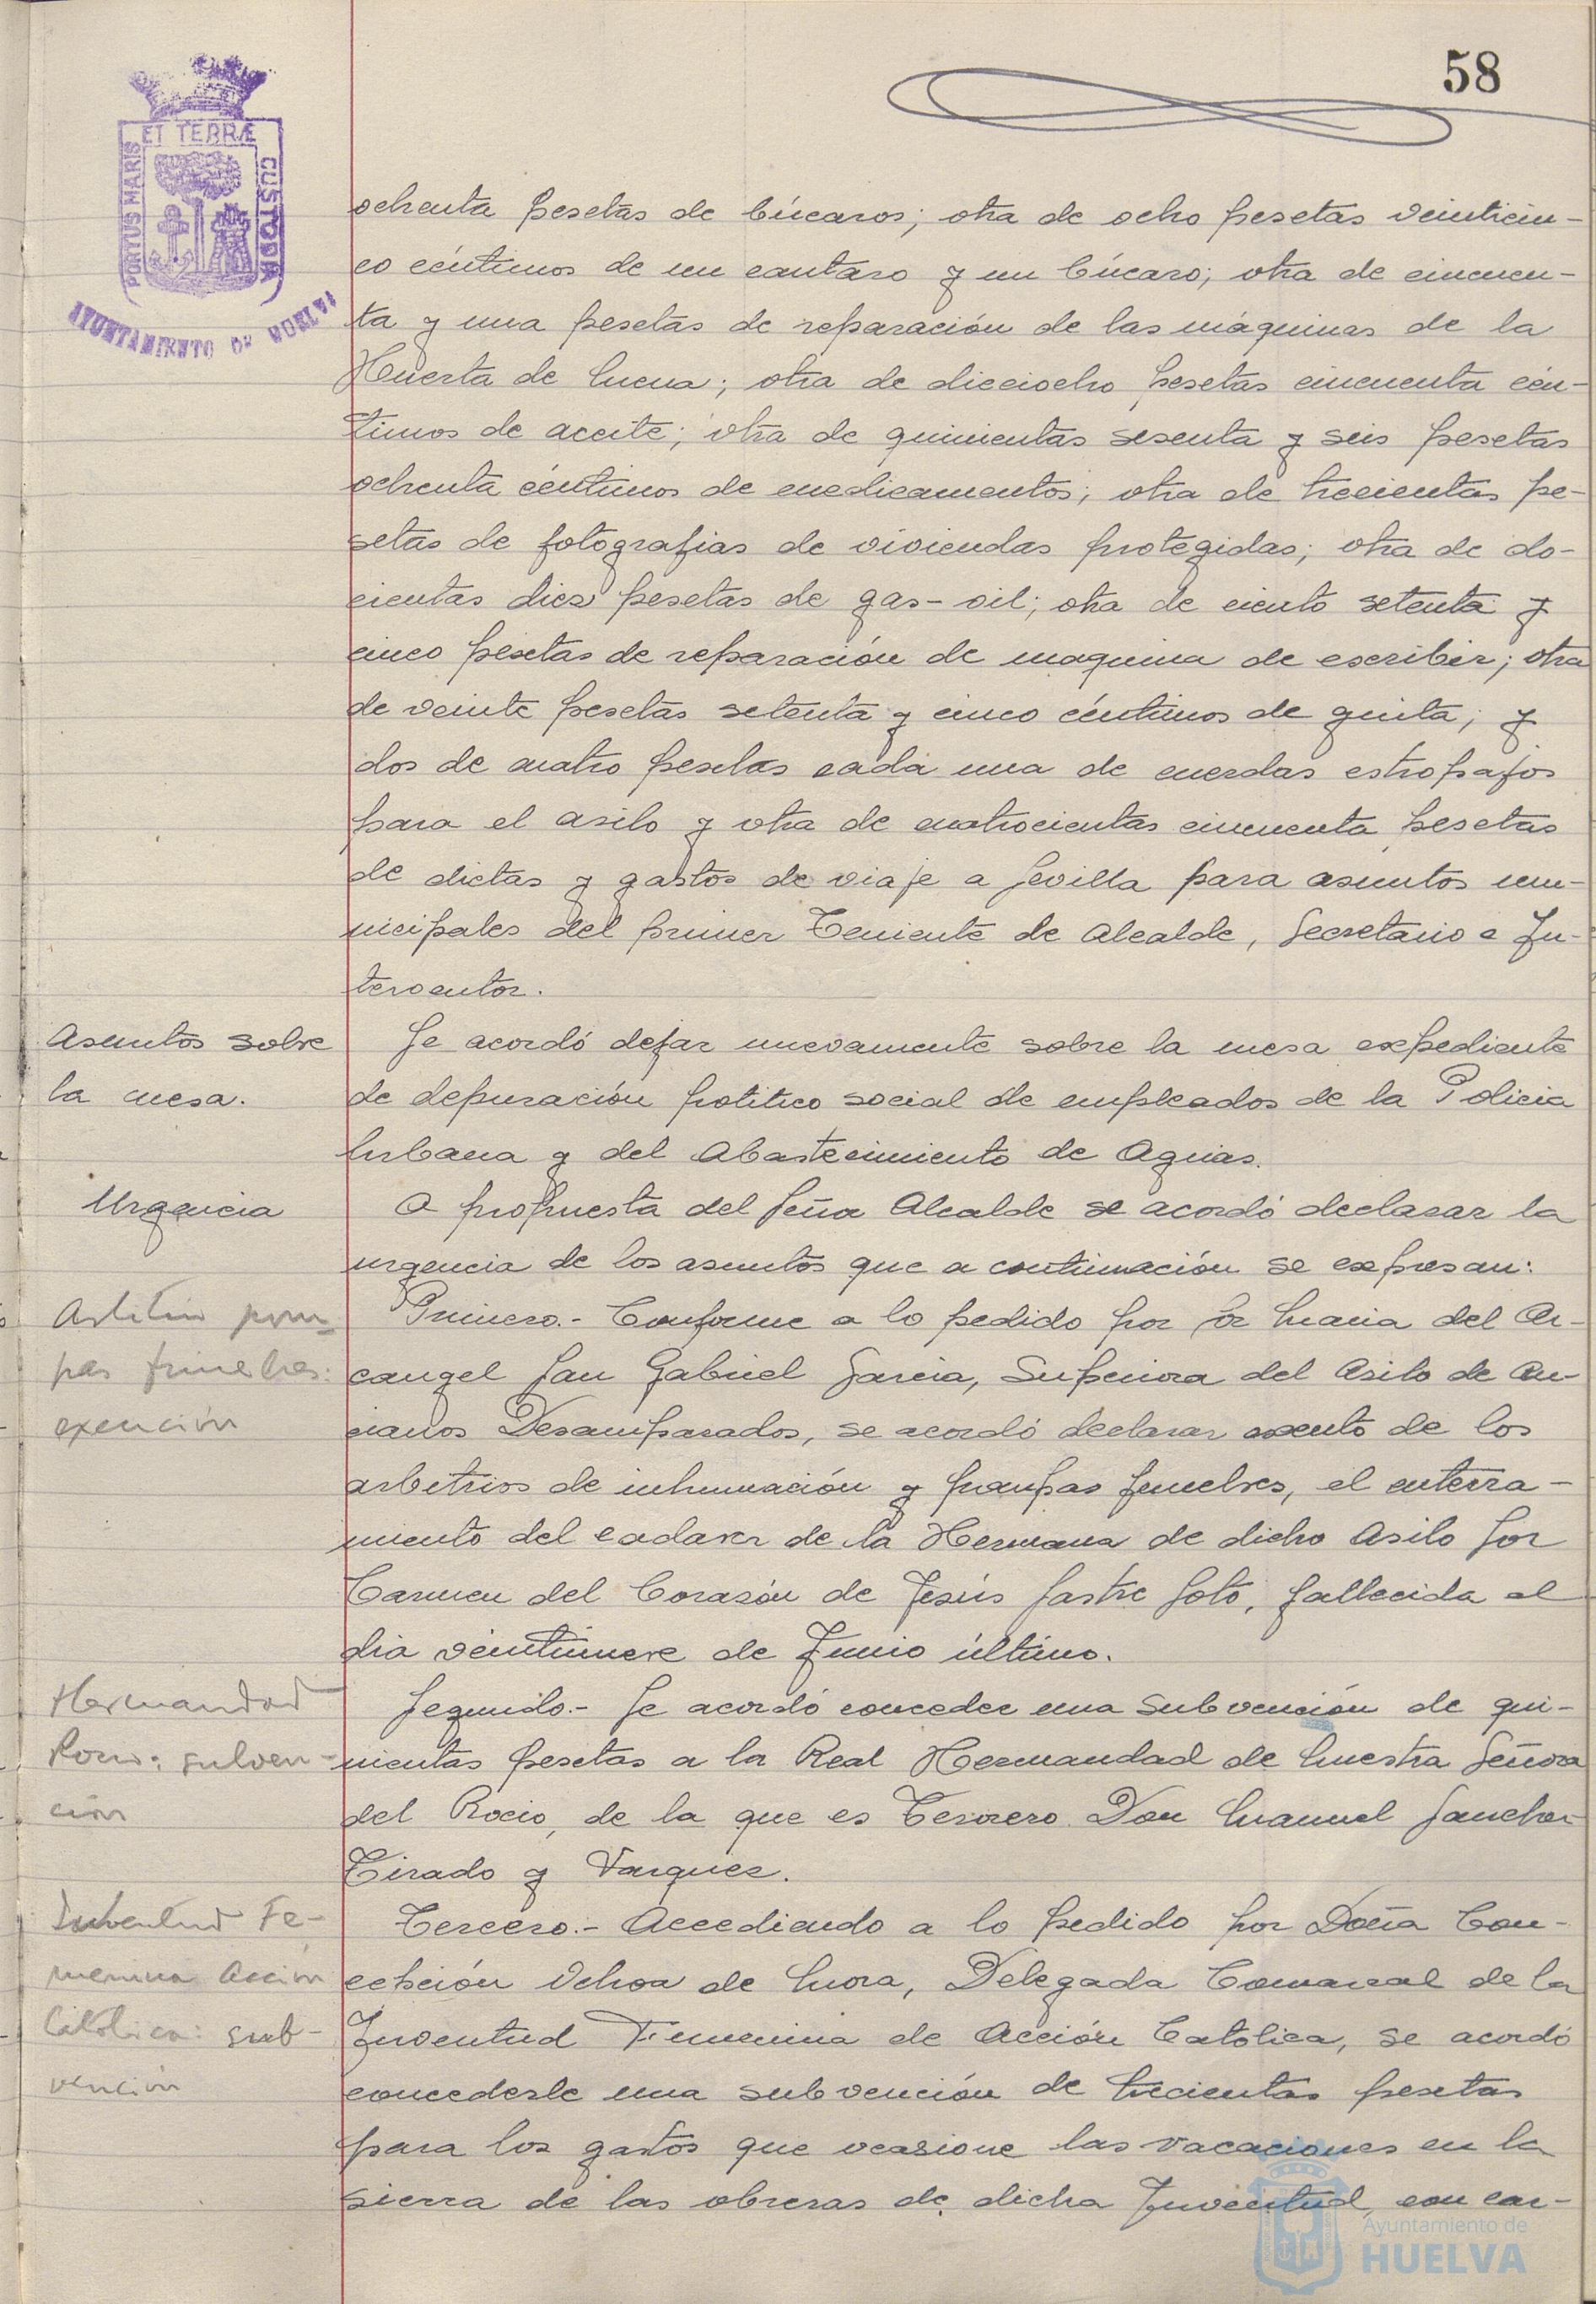 58
PORTUS MARIS
ET TERRÆ
CUSTODIA
AYUNTAMIENTO DE HUELVA
ochenta pesetas de búcaros; otra de ocho pesetas veinticin-
co céntimos de un cantaro y un búcaro; otra de cincuen-
ta y una pesetas de reparación de las máquinas de la
Huerta de Mena; otra de dieciocho pesetas cincuenta cén-
timos de aceite; otra de quinientas sesenta y seis pesetas
ochenta céntimos de medicamentos; otra de trecientas pe-
setas de fotografias de viviendas protegidas; otra de do-
cientas diez pesetas de gas-oil; otra de ciento setenta y
cinco pesetas de reparación de maquina de escribir; otra
de veinte pesetas setenta y cinco céntimos de guita; y
dos de cuatro pesetas cada una de cuerdas estropajos
para el asilo y otra de cuatrocientas cincuenta pesetas
de dietas y gastos de viaje a Sevilla para asuntos mu-
nicipales del primer Teniente de Alcalde, Secretario e In-
terventor.
Asuntos sobre
la mesa.
Se acordó dejar nuevamente sobre la mesa expediente
de depuración politico social de empleados de la Policia
Urbana y del Abastecimiento de Aguas.
Urgencia
A propuesta del Señor Alcalde se acordó declarar la
urgencia de los asuntos que a continuación se expresan:
Arbitrio pom-
pas funebres:
exención
Primero.- Conforme a lo pedido por Sor Maria del Ar-
cangel San Gabriel Garcia, Superiora del Asilo de An-
cianos Desamparados, se acordó declarar exento de los
arbitrios de inhumación y pompas funebres, el enterra-
miento del cadaver de la Hermana de dicho Asilo Sor
Carmen del Corazón de Jesús Sastre Soto, fallecida el
dia veintinueve de Junio último.
Hermandad
Rocio: subven-
ción
Segundo.- Se acordó conceder una subvención de qui-
nientas pesetas a la Real Hermandad de Nuestra Señora
del Rocio, de la que es Tesorero Don Manuel Sanchez
Tirado y Vazquez.
Juventud Fe-
menina Acción
Católica: sub-
vención
Tercero.- Accediendo a lo pedido por Doña Con-
cepción Ochoa de Mora, Delegada Comarcal de la
Juventud Femenina de Acción Catolica, se acordó
concederle una subvención de trecientas pesetas
para los gastos que ocasione las vacaciones en la
sierra de las obreras de dicha Juventud, con car-
Ayuntamiento de
HUELVA